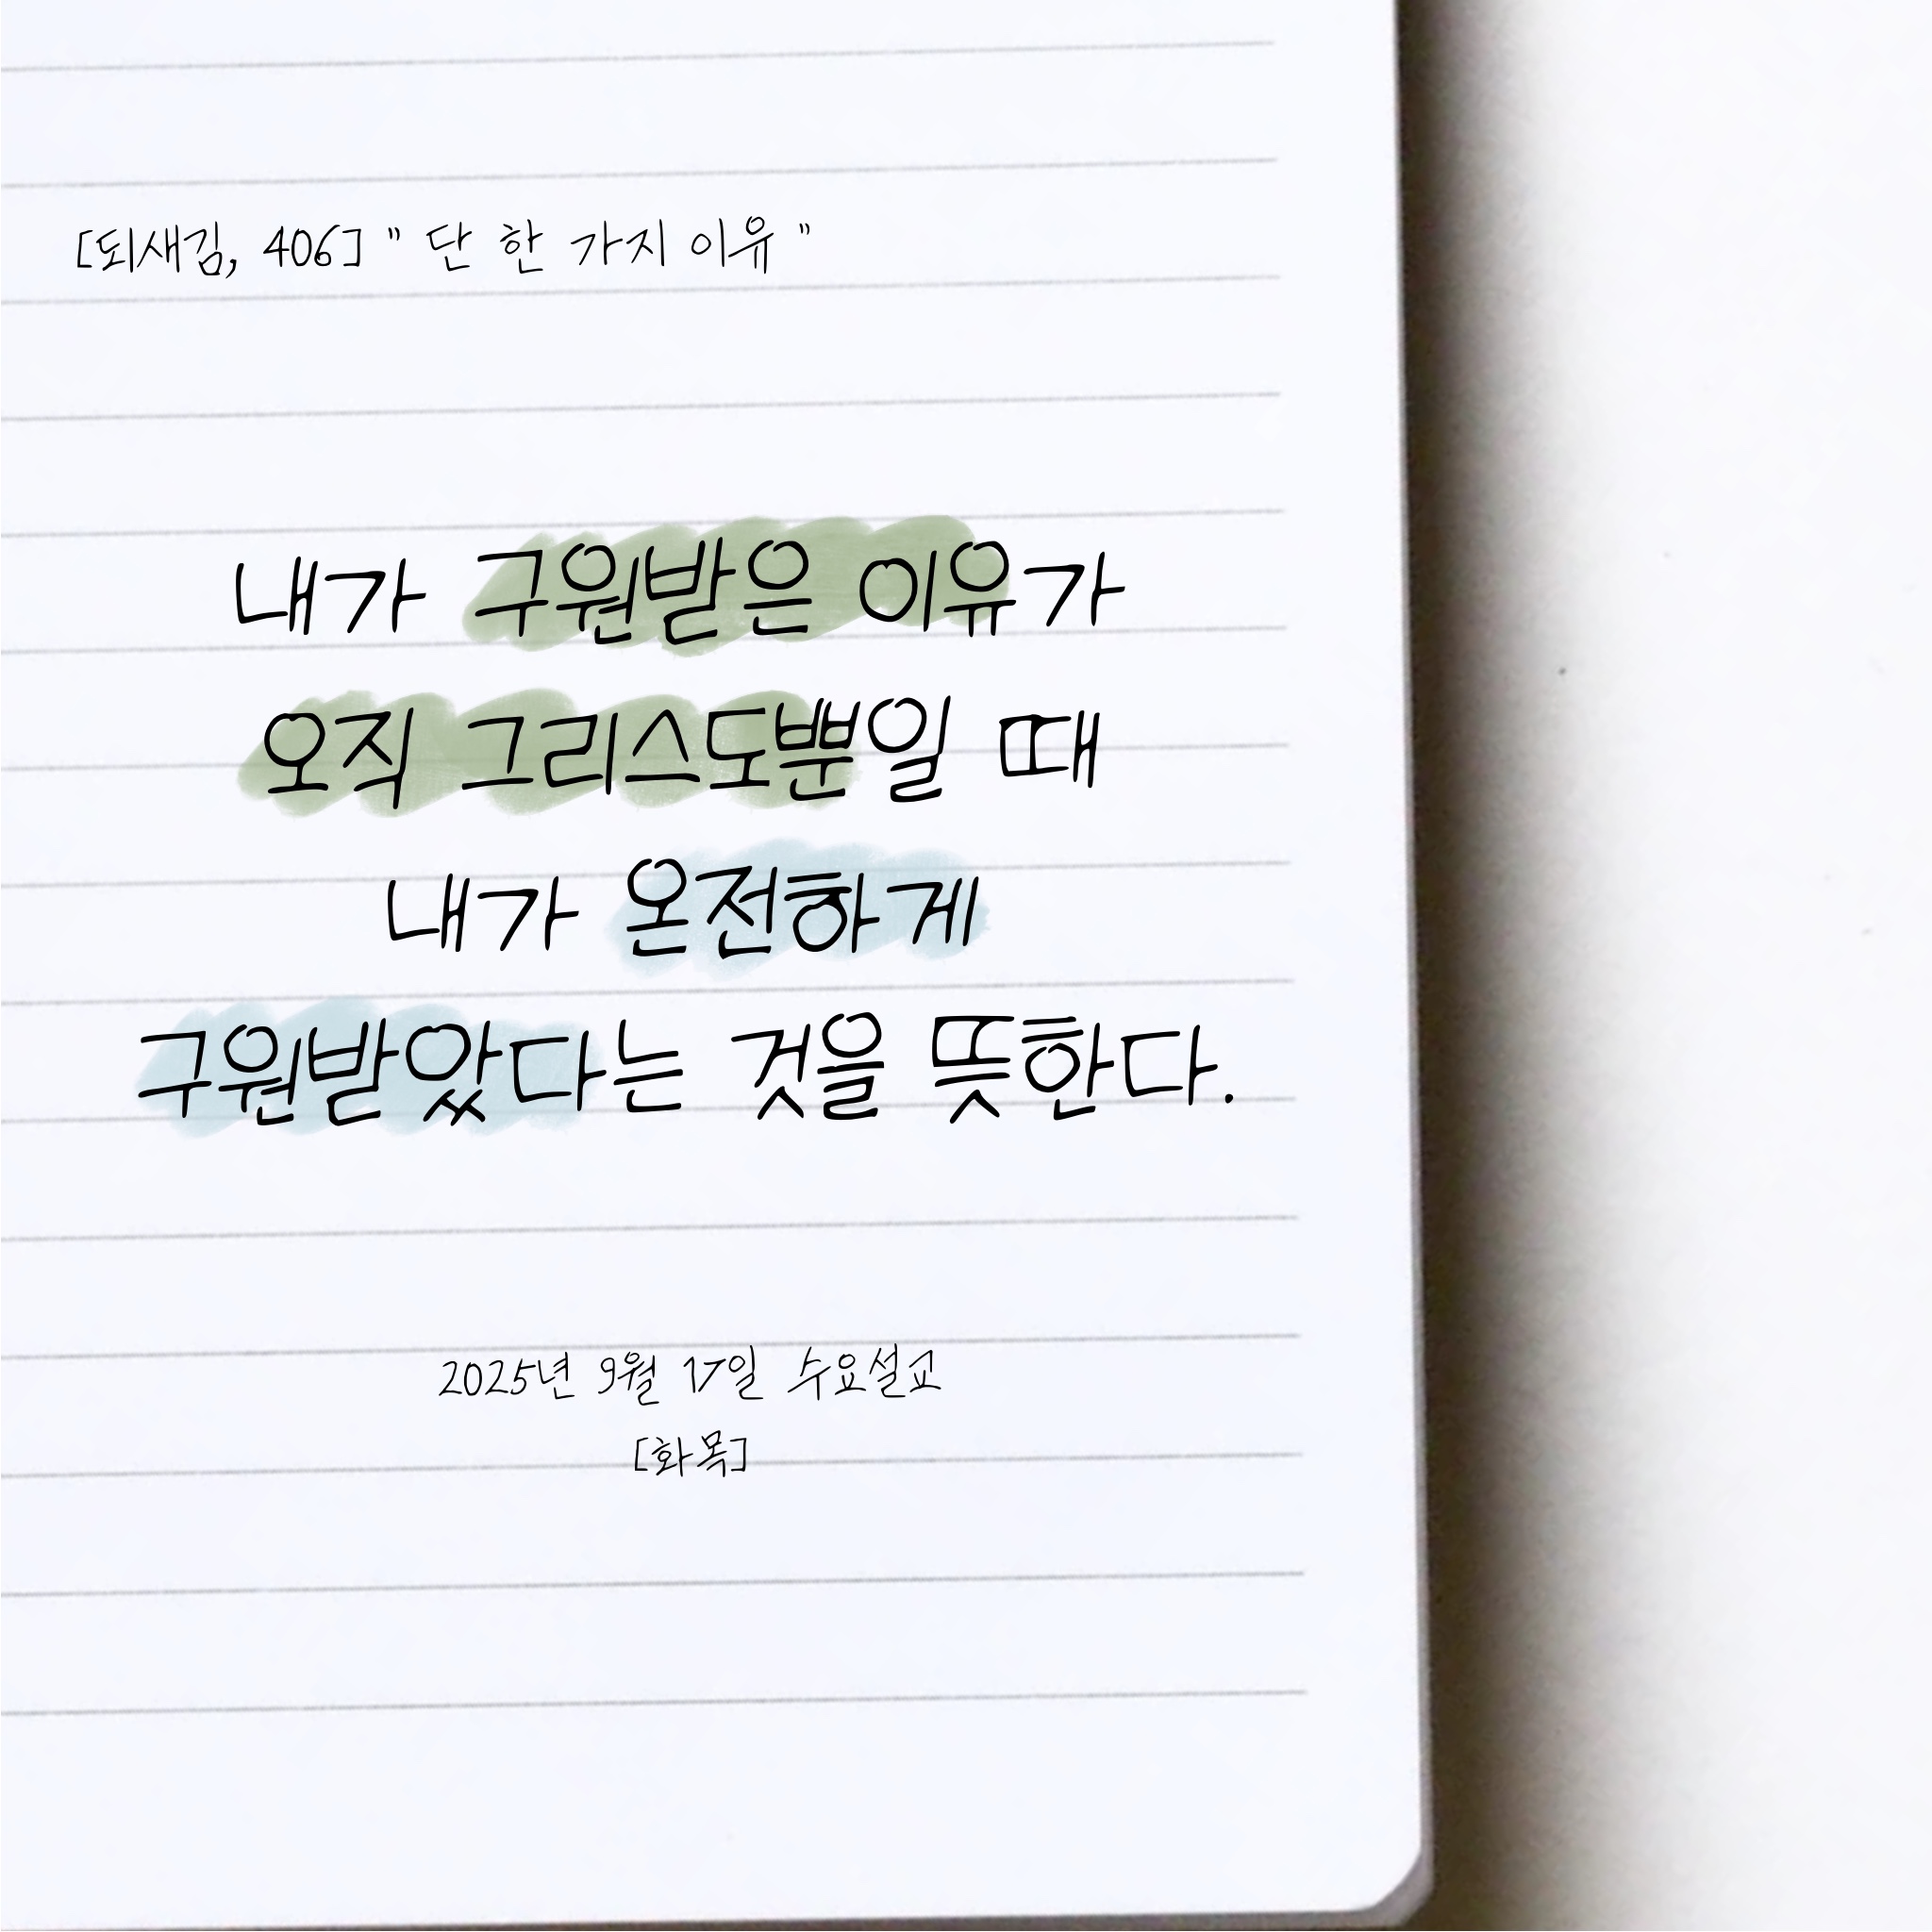 [되새김, 406] " 단 한 가지 이유 "
내가 구원받은 이유가
오직 그리스도뿐일 때
내가 온전하게
구원받았다는 것을 뜻한다.
2025년 9월 17일 수요설교
[화목]